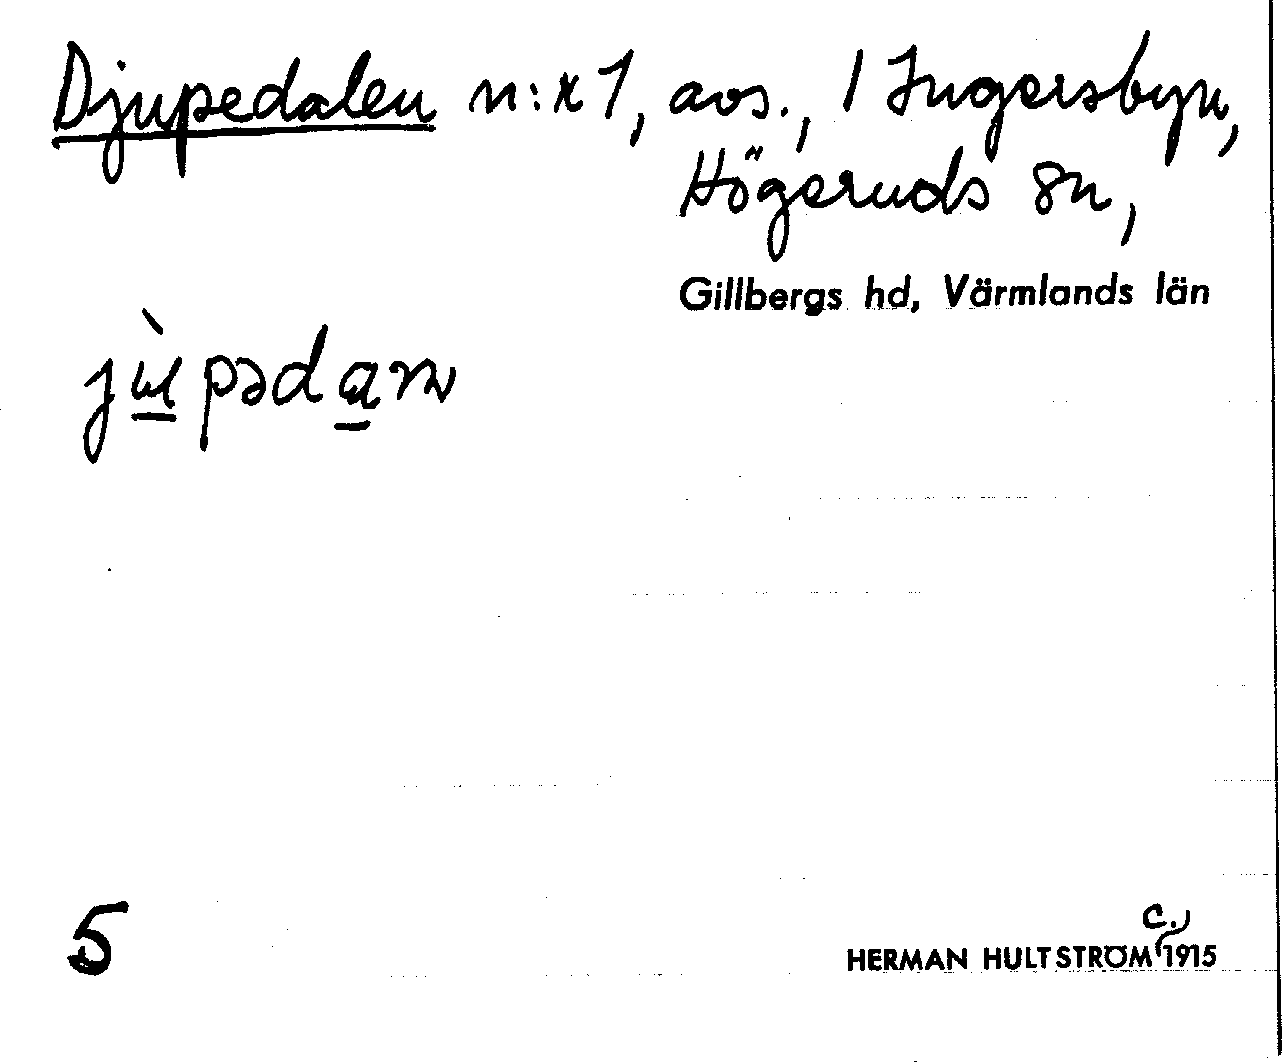 Djupedalen n:r 1, avs., 1 Ingersbyn,
Högeruds sn,
Gillbergs hd, Värmlands län
jùpədam
5
c.
HERMAN HULTSTRÖM 1915